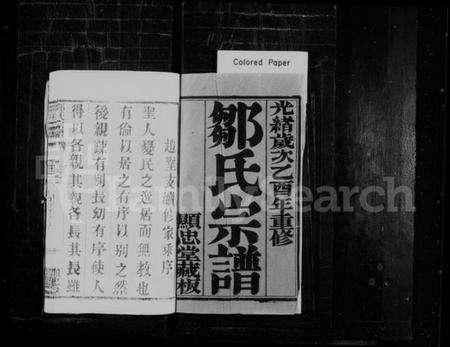 Colored Paper
光緒歲次乙酉年重修
鄒氏宗譜
顯忠堂藏板
聖人憂民之逸居而無教也
有倫以居之有序以別之然
後親疎有別長幼有序使人
得以各親其親各長其長雖